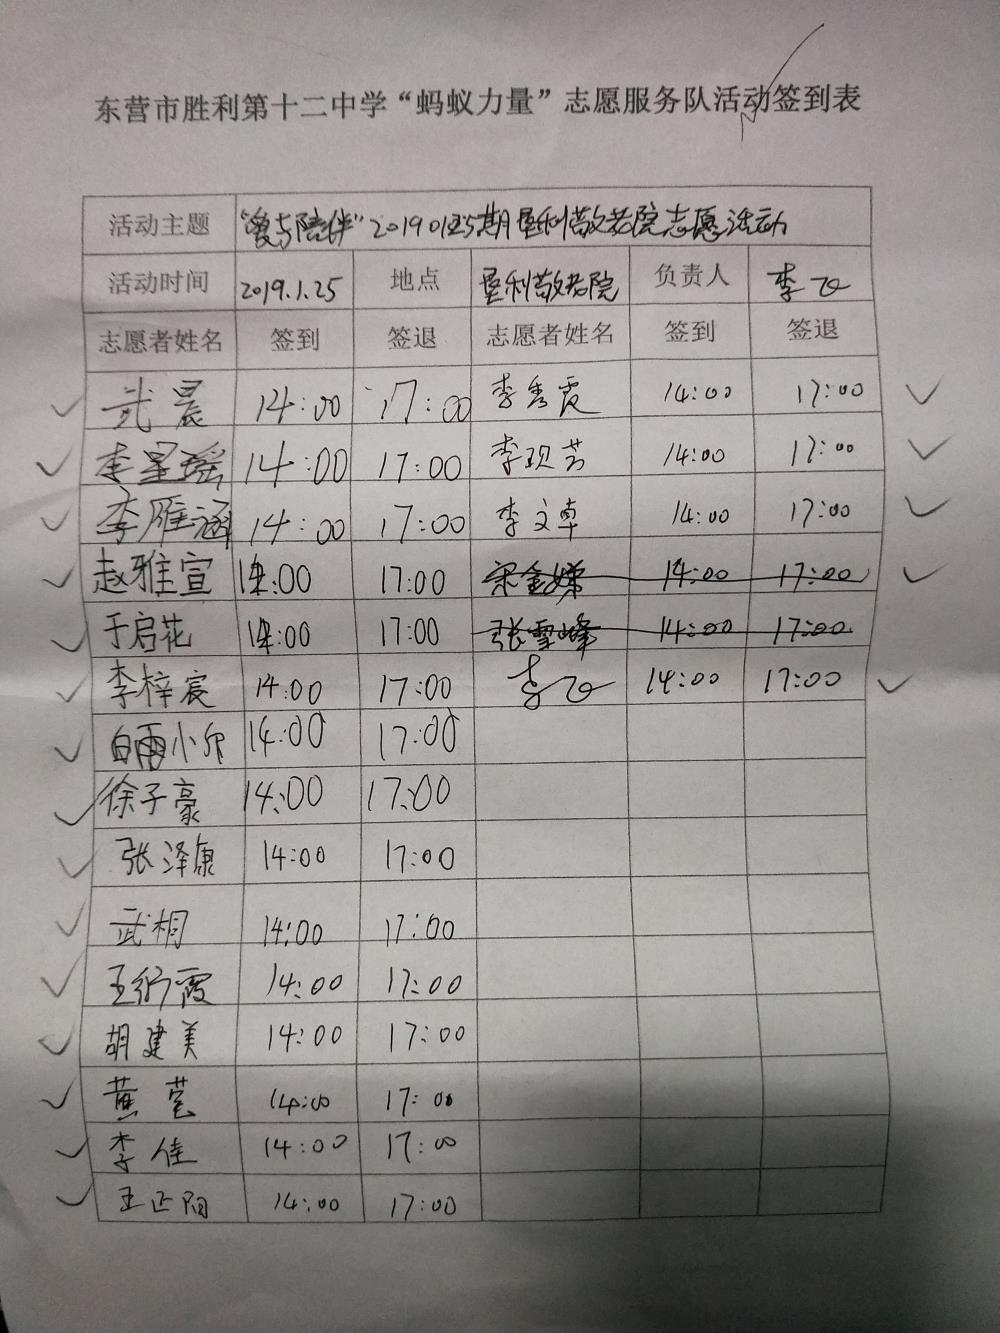 东营市胜利第十二中学“蚂蚁力量”志愿服务队活动签到表
活动主题 “爱与陪伴”20190125期垦利敬老院志愿活动
活动时间 2019.1.25 地点 垦利敬老院 负责人 李飞
志愿者姓名 签到 签退 志愿者姓名 签到 签退
武晨 14:00 17:00 李秀霞 14:00 17:00
李星瑶 14:00 17:00 李现芸 14:00 17:00
李雁涵 14:00 17:00 李文卓 14:00 17:00
赵雅宣 14:00 17:00 宋金娣 14:00 17:00
于启花 14:00 17:00 张雪峰 14:00 17:00
李梓宸 14:00 17:00 李飞 14:00 17:00
白雨小卯 14:00 17:00
徐子豪 14:00 17:00
张泽康 14:00 17:00
武桐 14:00 17:00
王霞 14:00 17:00
胡建美 14:00 17:00
黄莹 14:00 17:00
李佳 14:00 17:00
王正阳 14:00 17:00